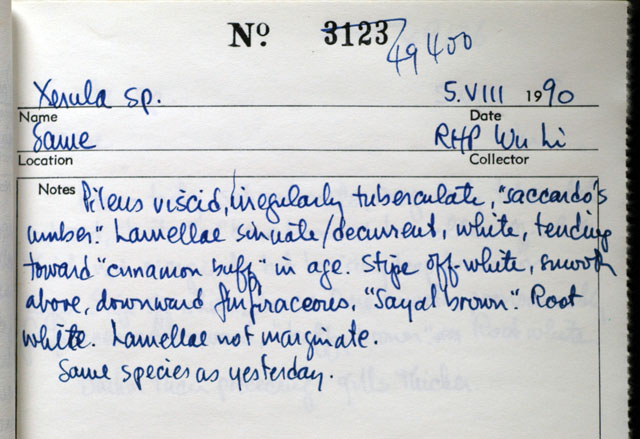 Nº 3123 49400
Xerula sp. 5.VIII 1990
Name Date
Same RHP Wu Li
Location Collector
Notes Pileus viscid, irregularly tuberculate, "saccardo's
umber." Lamellae sinuate/decurrent, white, tending
toward "cinnamon buff" in age. Stipe off-white, smooth
above, downward furfuraceous, "Sayal brown" Root
white. Lamellae not marginate.
Same species as yesterday.